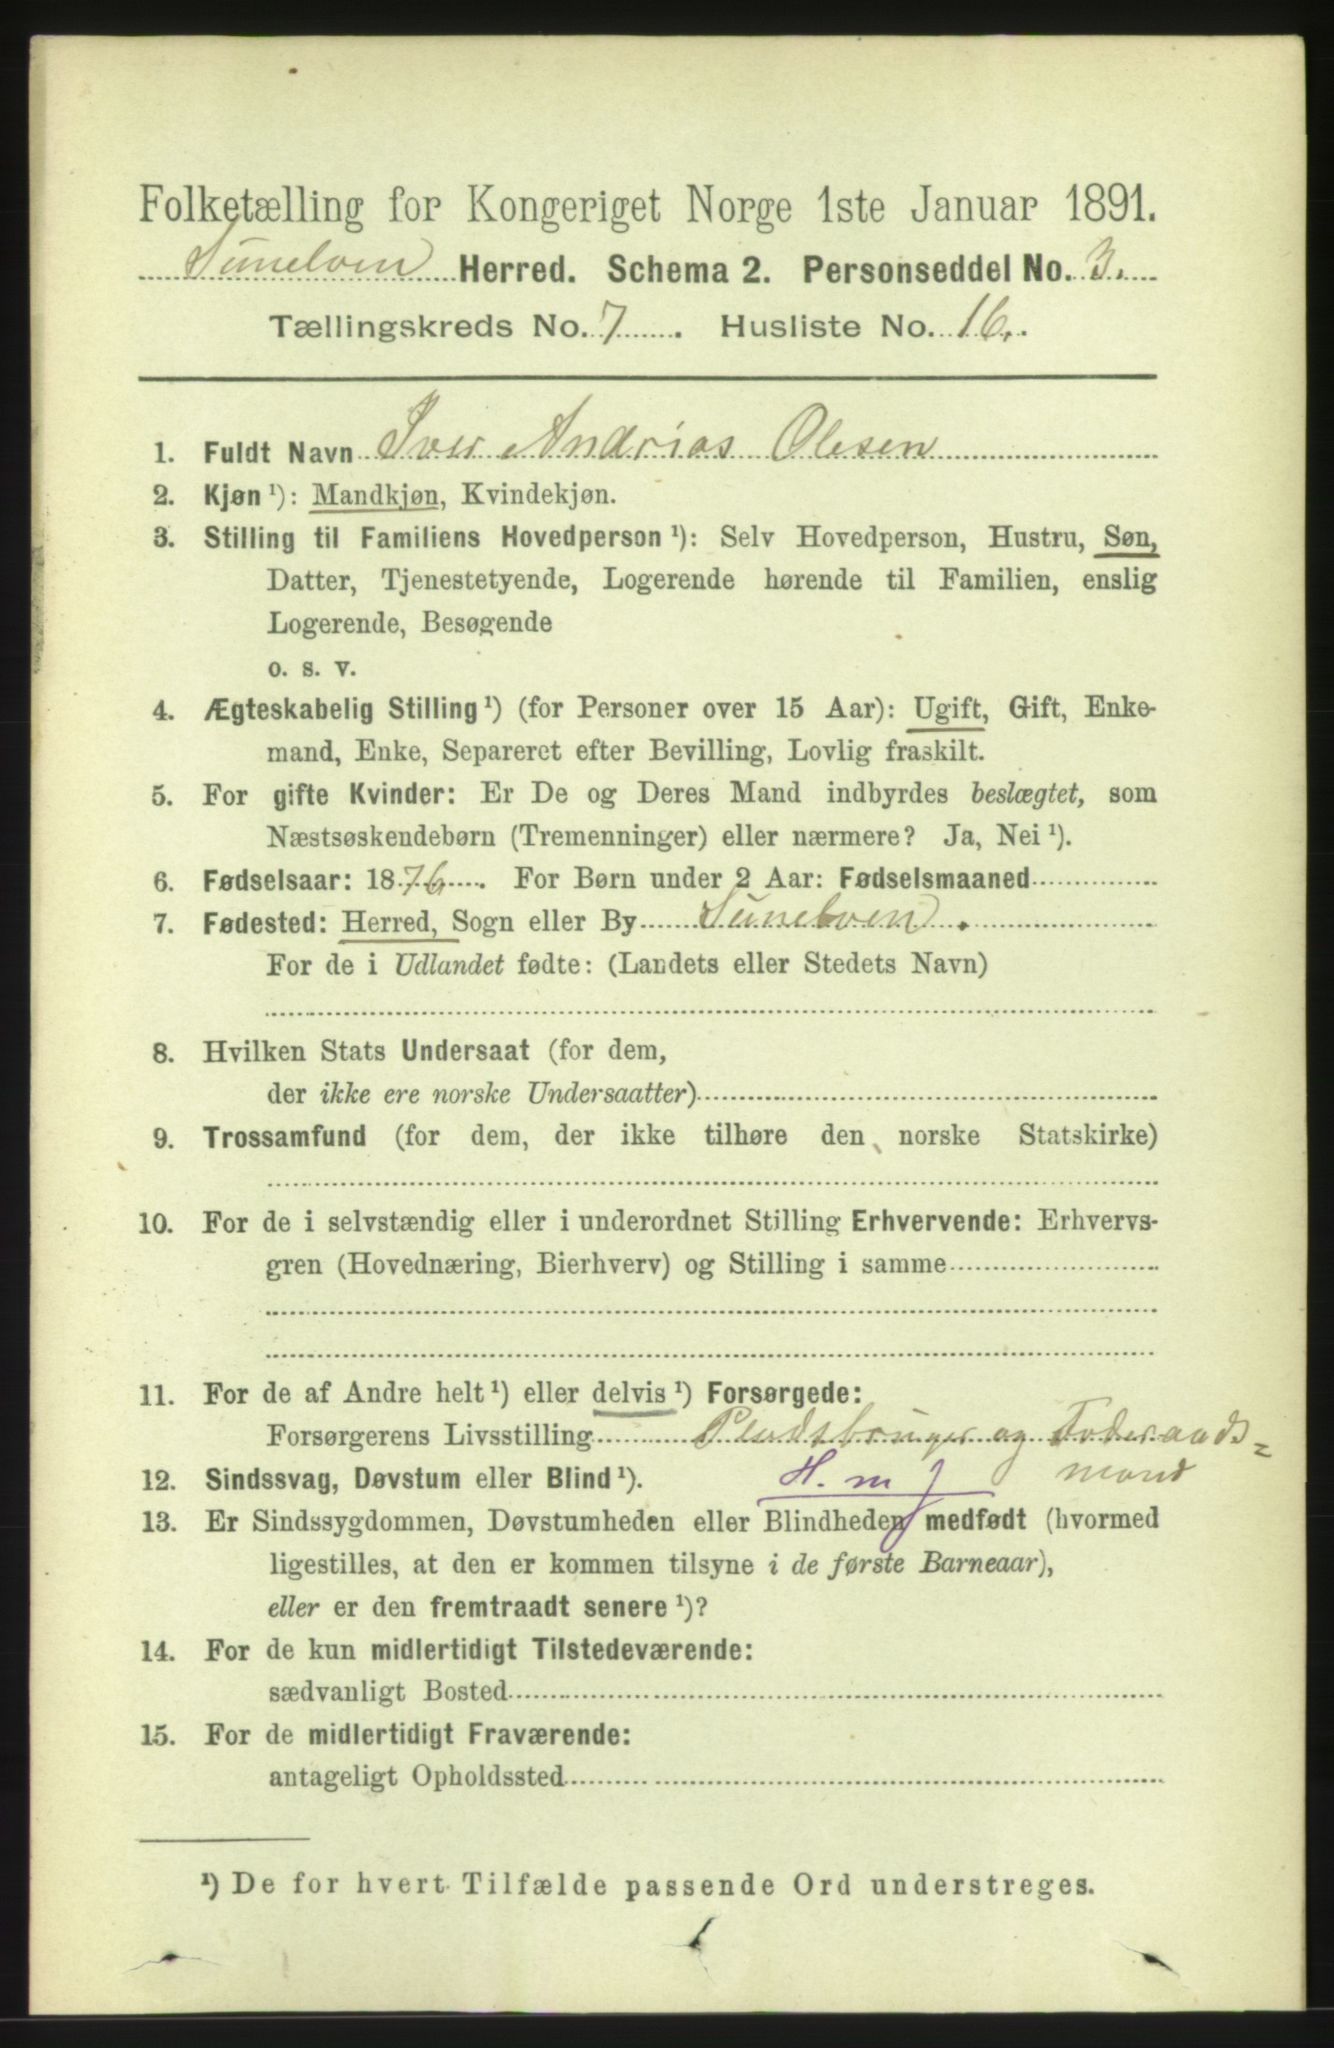 Folketælling for Kongeriget Norge 1ste Januar 1891.
Sunelven Herred. Schema 2. Personseddel No. 3.
Tællingskreds No. 7. Husliste No. 16.
1. Fuldt Navn Iver Andrias Olesen
2. Kjøn ¹): Mandkjøn, Kvindekjøn.
3. Stilling til Familiens Hovedperson ¹): Selv Hovedperson, Hustru, Søn,
Datter, Tjenestetyende, Logerende hørende til Familien, enslig
Logerende, Besøgende
o. s. v.
4. Ægteskabelig Stilling ¹) (for Personer over 15 Aar): Ugift, Gift, Enke-
mand, Enke, Separeret efter Bevilling, Lovlig fraskilt.
5. For gifte Kvinder: Er De og Deres Mand indbyrdes beslægtet, som
Næstsøskendebørn (Tremenninger) eller nærmere? Ja, Nei ¹).
6. Fødselsaar: 1876. For Børn under 2 Aar: Fødselsmaaned
7. Fødested: Herred, Sogn eller By Sunelven.
For de i Udlandet fødte: (Landets eller Stedets Navn)
8. Hvilken Stats Undersaat (for dem,
der ikke ere norske Undersaatter)
9. Trossamfund (for dem, der ikke tilhøre den norske Statskirke)
10. For de i selvstændig eller i underordnet Stilling Erhvervende: Erhvervs-
gren (Hovednæring, Bierhverv) og Stilling i samme
11. For de af Andre helt ¹) eller delvis ¹) Forsørgede:
Forsørgerens Livsstilling Pladsbruger og Foderaads=
mand
12. Sindssvag, Døvstum eller Blind ¹). H. m f
13. Er Sindssygdommen, Døvstumheden eller Blindheden medfødt (hvormed
ligestilles, at den er kommen tilsyne i de første Barneaar),
eller er den fremtraadt senere ¹)?
14. For de kun midlertidigt Tilstedeværende:
sædvanligt Bosted
15. For de midlertidigt Fraværende:
antageligt Opholdssted
¹) De for hvert Tilfælde passende Ord understreges.